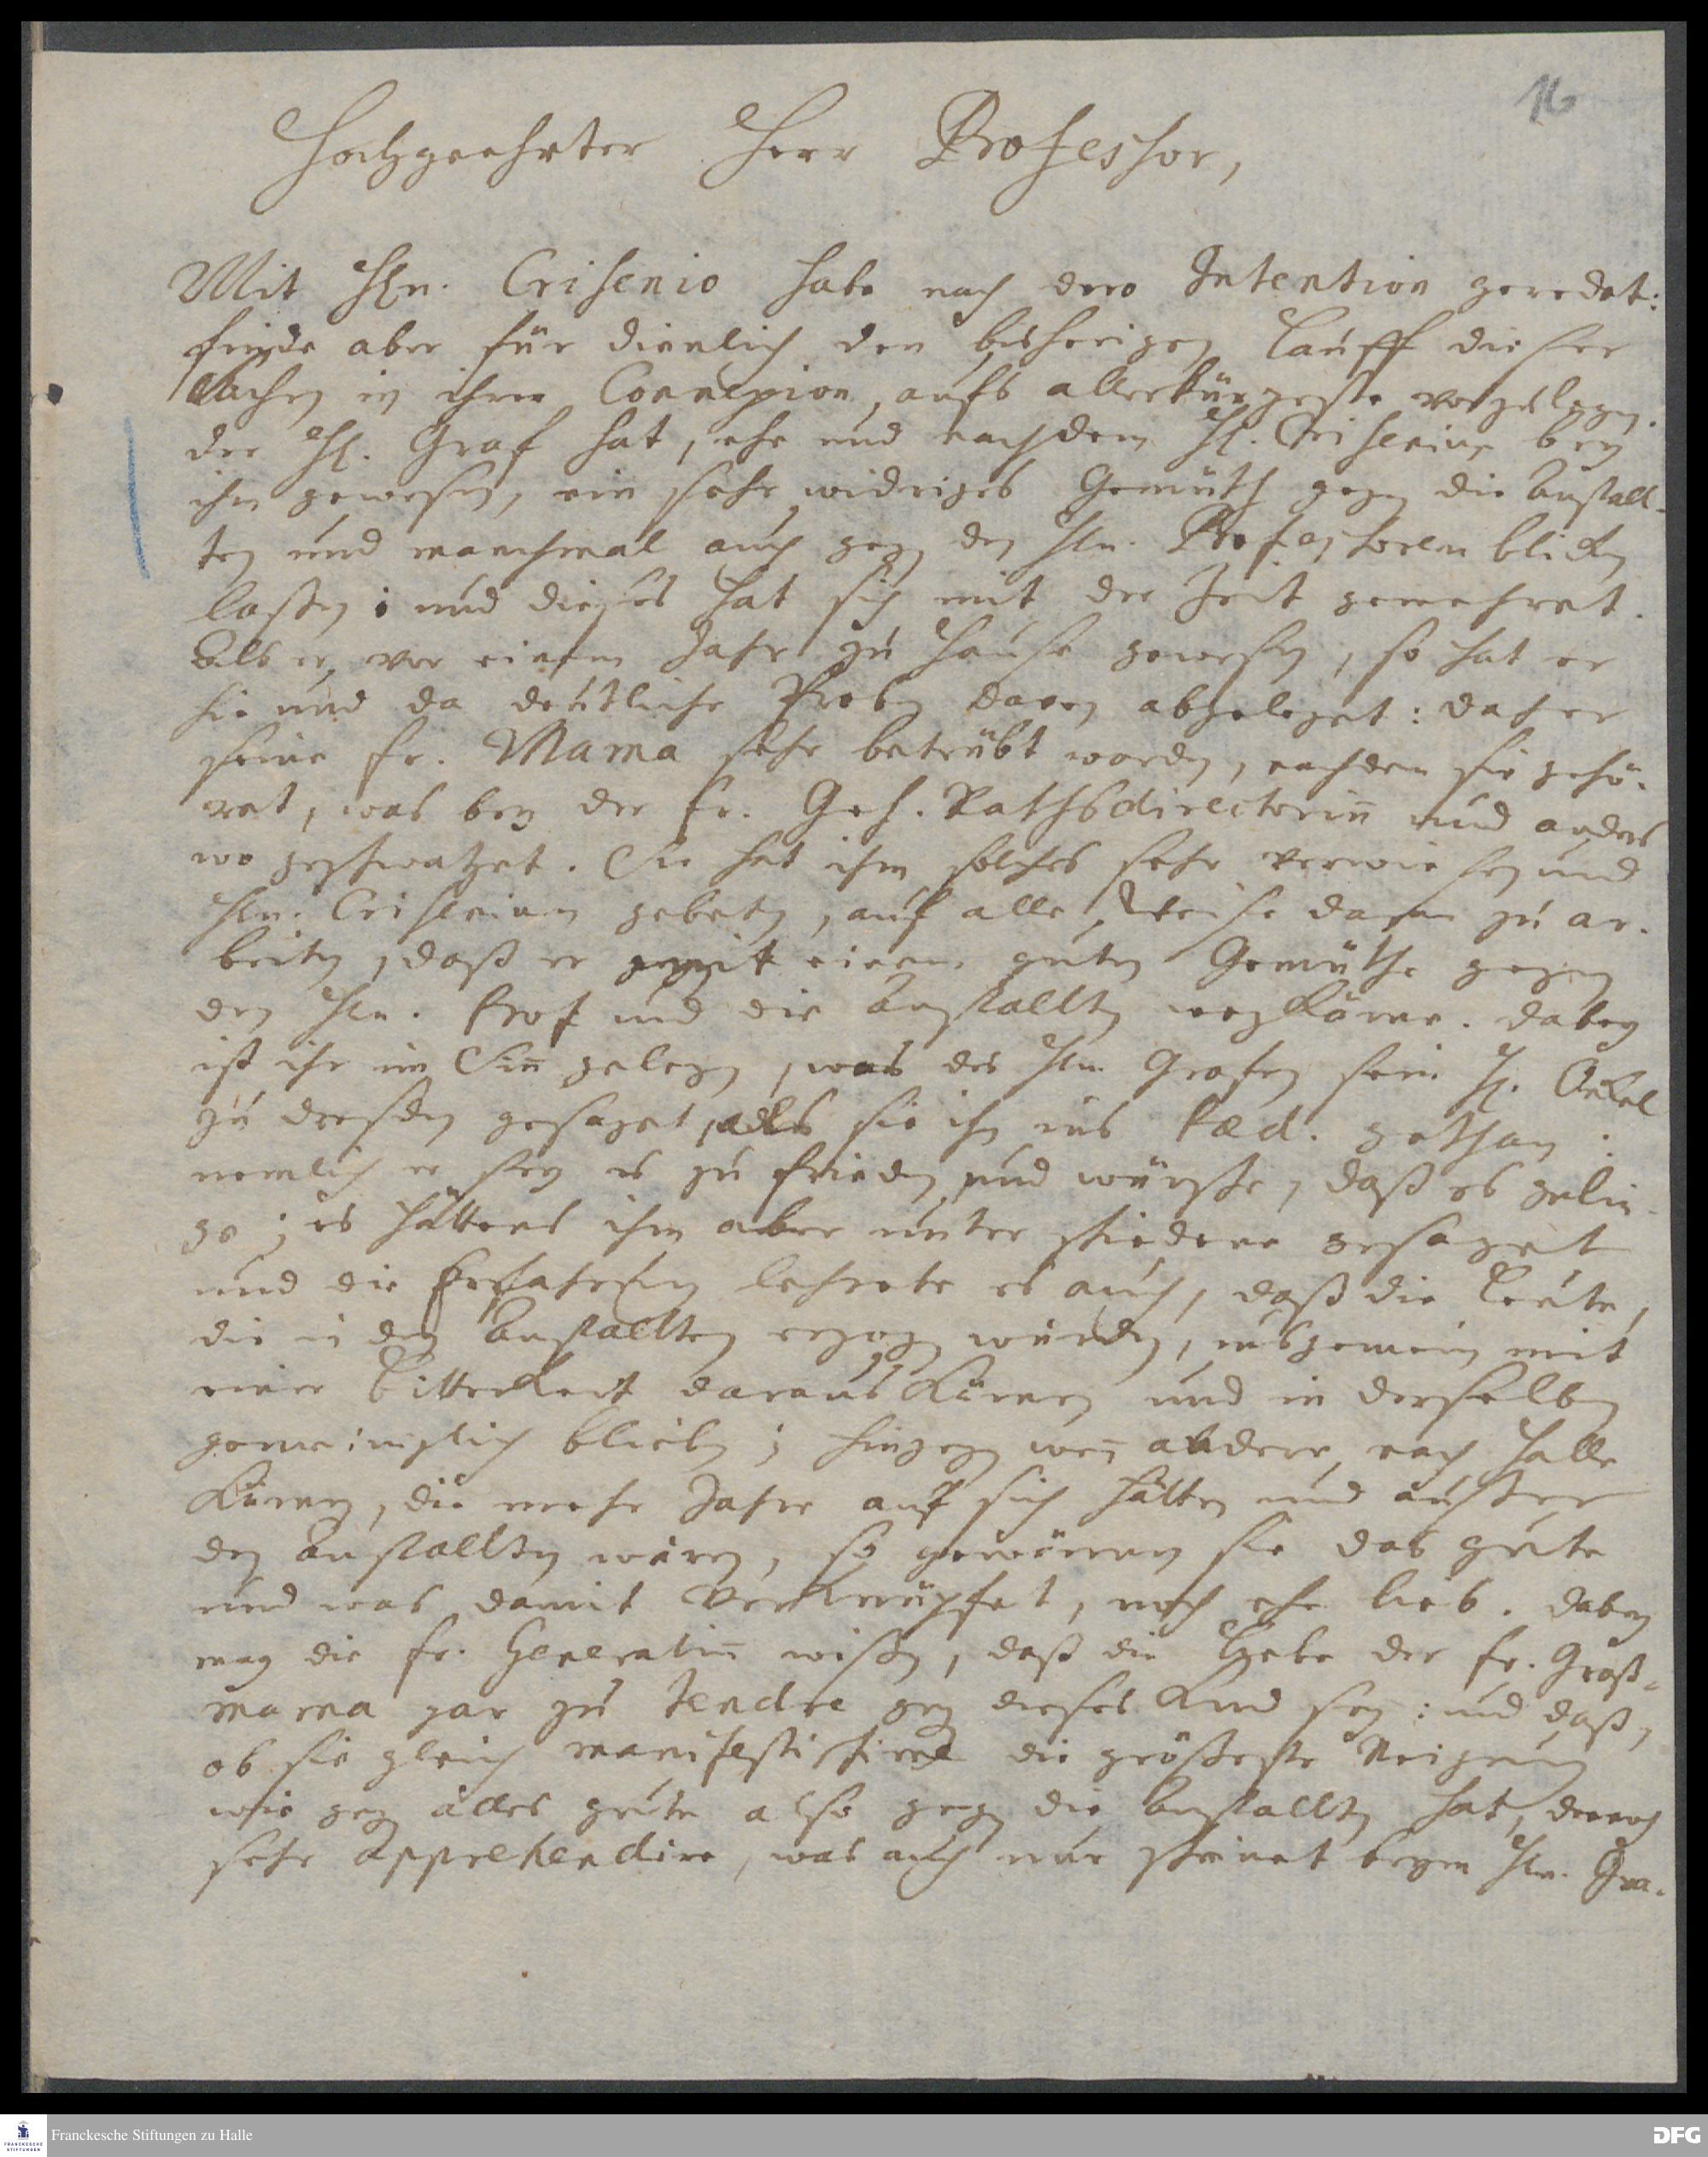 16
Hochgeehrter Herr Professor,
Mit Hln. Crisenio habe nach dero Intention geredet:
finde aber für dienlich den bisherigen Lauff dieser
Sachen in ihrer Connexion, aufs allerkürzeste vorzulegen.
der Hl. Graf hat, ehe und nachdem Hl. Crisenius bey
ihm gewesen, ein sehr widriges Gemüth gegen die Anstall-
ten und manchmal auch gegen den Hln. Professorem blicken
lassen: und dieses hat sich mit der Zeit gemehret.
Als er vor einem Jahr zu Hause gewesen, so hat er
hie und da deutliche Proben davon abgeleget: daher
seine Fr. Mama sehr betrübt worden, nachdem sie gehö-
ret, was bey der Fr. Geh. Rathsdirectorin̄ und anders
wo geschwatzet. Sie hat ihm solches sehr verwiesen und
Hln. Crisenium gebeten, auf alle Weise daran zu ar-
beiten, daß er mit einem guten Gemüthe gegen
den Hln. Prof und die Anstallten wegkäme. dabey
ist ihr im Sin̄ gelegen, was des Hln. Grafen sein Hl. Onkel
zu Dresden gesaget, als sie ihn ins Pæd. gethan:
nemlich er sey es zu frieden und wünsche, daß es gelin-
ge; es hättens ihm aber unterschiedene gesaget
und die Erfahrung lehrete es auch, daß die Leute,
die in den Anstallten erzogen würden, insgemein mit
einer Bitterkeit daraus kämen und in derselben
gemeiniglich blieben; hingegen wen̄ andere nach Halle
kämen, die mehr Jahre auf sich hätten und ausser
den Anstallten wären, so gewönnen sie das gute
und was damit verknüpfet, noch ehe lieb. dabey
mag die Fr. Generalin̄ wissen, daß die Liebe der Fr. Groß-
mama gar zu tendre gegen dieses Kind sey: und daß,
ob sie gleich manifestissime die größeste Neigung
wie gegen alles gute also gegen die Anstallten hat, dennoch
sehr apprehendire, was auch nur scheinet beym Hln. Gra-
Franckesche Stiftungen zu Halle
FRANCKESCHE
STIFTUNGEN
DFG